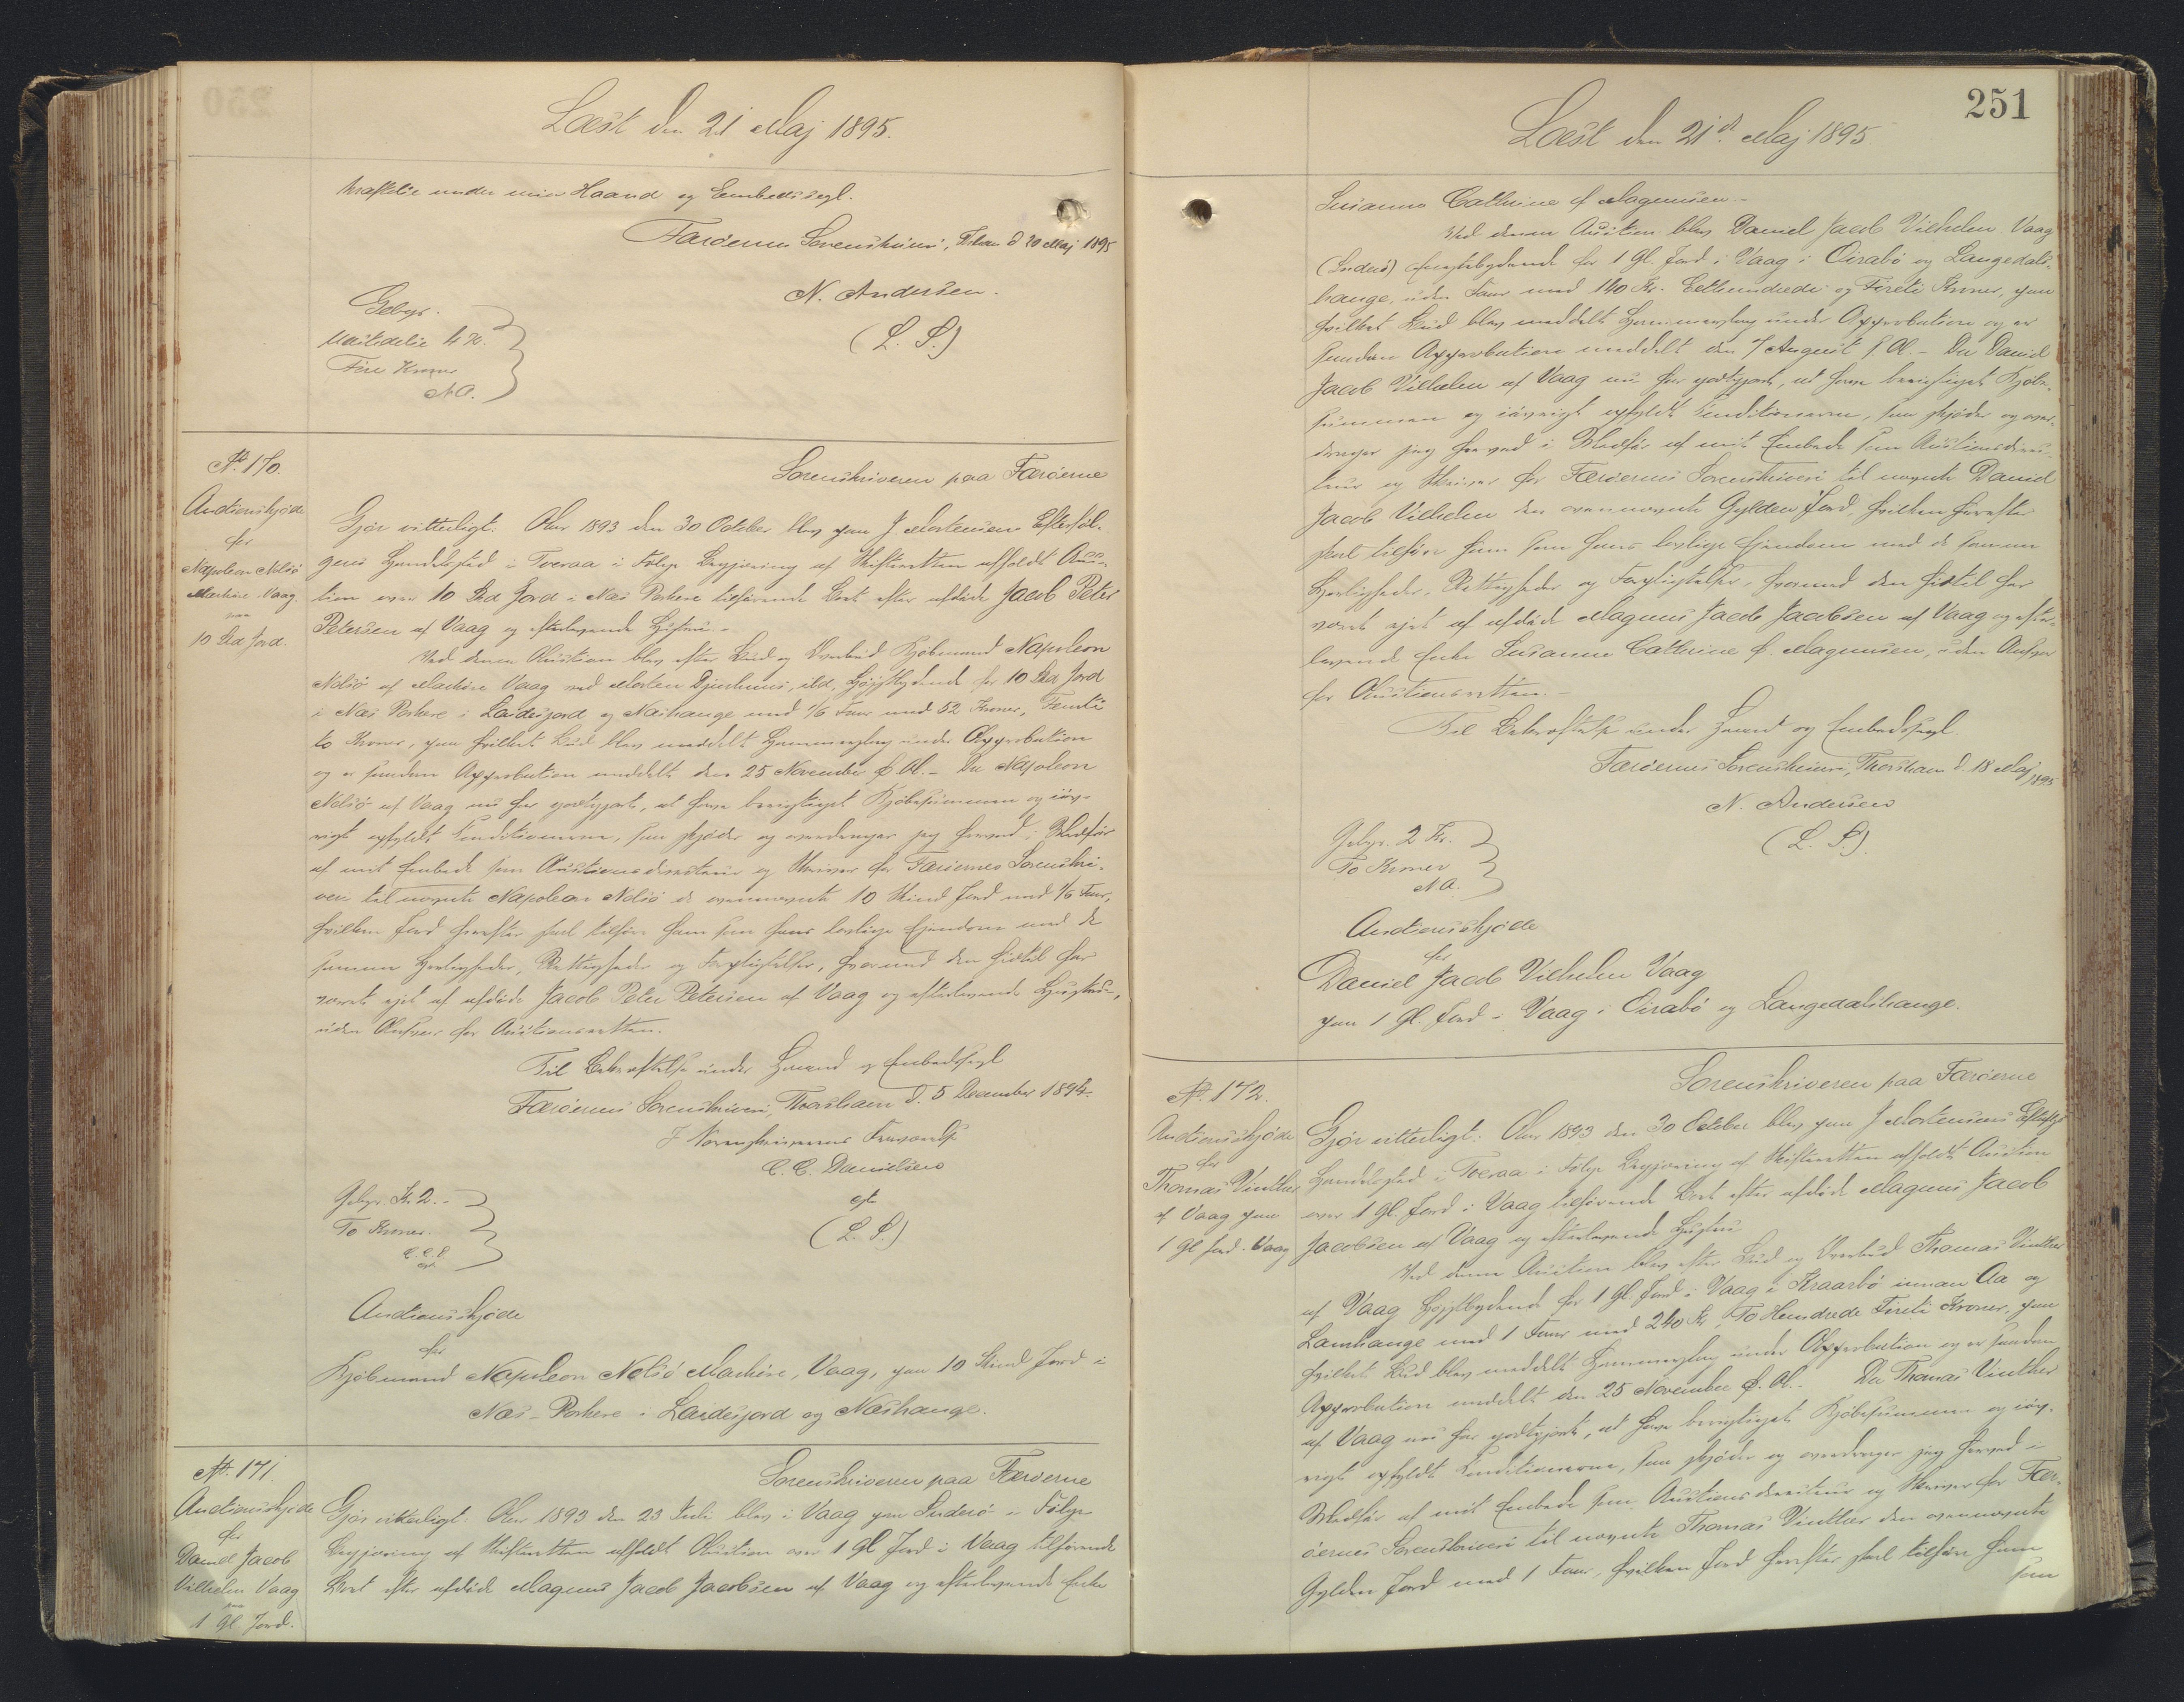 Læst den 21 Maj 1895.
kræftelse under min Haand og Embedssegl.
Færøernes Sorenskriveri, Thhavn d 20 Maj 1895
N. Andersen.
(L. S.)
Gebyr.
Udstedelse 4 Kr.
Fire Kroner
N A.
No. 170.
Auctionsskjøde
for
Napoleon Nolsø
Machine Vaag.
paa
10 Skd Jord.
Sorenskriveren paa Færøerne
Gjør vitterligt: Aar 1893 den 30 October blev paa J. Mortensens Efterføl-
gers Handelssted i Tveraa i Følge Begjæring af Skifteretten afholdt Auc-
tion over 10 Skd Jord i Næs Porkere tilhørende Boet efter afdøde Jacob Peter
Petersen af Vaag og efterlevende Hustru.-
Ved denne Auction blev efter Bud og Overbud Kjøbmand Napoleon
Nolsø af Vaag ved Morten Djurhuus, ibd, højstbydende for 10 Skd Jord
i Næs Porkere i Laidesjord og Næshauge med 1/6 Faar med 52 Kroner, Femti
to Kroner, paa hvilket Bud blev meddelt Hammerslag under Approbation
og er saadan Approbation meddelt den 25 November s. A. - Da Napoleon
Nolsø af Vaag nu har godtgjort, at have berigtiget Kjøbesummen og iøv-
rigt opfyldt Conditionerne, saa skjøder og overdrager jeg herved i Medfør
af mit Embede som Auctionsdirecteur og Skriver for Færøernes Sorenskri-
veri til nævnte Napoleon Nolsø de ovennævnte 10 Skind Jord med 1/6 Faar,
hvilken Jord herefter skal tilhøre ham som hans lovlige Ejendom med de
samme Herligheder, Rettigheder og Forpligtelser, hvormed den hidtil har
været ejet af afdøde Jacob Peter Petersen af Vaag og efterlevende Hustru,
uden Ansvar for Auctionsretten.
Til Bekræftelse under Haand og Embedssegl
Færøernes Sorenskriveri, Thorshavn d. 5 December 1894.
I Sorenskriverens Fraværelse
C. C. Danielsen
cst.
(L. S.)
Gebyr Kr. 2.-
To Kroner.
C. C. D
cst
Auctionsskjøde
for
Kjøbmand Napoleon Nolsø Machine, Vaag, paa 10 Skind Jord i
Næs - Porkere i Laidesjord og Næshauge.
No. 171.
Auctionsskjøde
for
Daniel Jacob
Vilhelm Vaag
paa
1 Gl. Jord.
Sorenskriveren paa Færøerne
Gjør vitterligt: Aar 1893 den 23 Juli blev i Vaag paa Suderø i Følge
Begjæring af Skifteretten afholdt Auction over 1 Gl Jord i Vaag tilhørende
Boet efter afdøde Magnus Jacob Jacobsen af Vaag og efterlevende Enke
251
Læst den 21d. Maj 1895
Susanne Cathrine f Magnusen.-
Ved denne Auction blev Daniel Jacob Vilhelm Vaag
(Suderø) højstbydende for 1 Gl. Jord i Vaag i Cirabø og Langedals-
hauge, uden Faar med 140 Kr. Eethundrede og Fireti Kroner, paa
hvilket Bud blev meddelt Hammerslag under Approbation og er
saadan Approbation meddelt den 7 August s. A. - Da Daniel
Jacob Vilhelm af Vaag nu har godtgjort, at have berigtiget Kjøbe-
summen og iøvrigt opfyldt Conditionerne, saa skjøder og over-
drager jeg herved i Medfør af mit Embede som Auctionsdirec-
teur og Skriver for Færøernes Sorenskriveri til nævnte Daniel
Jacob Vilhelm den ovennævnte Gylden Jord, hvilken herefter
skal tilhøre ham som hans lovlige Ejendom med de samme
Herligheder, Rettigheder og Forpligtelser, hvormed den hidtil har
været ejet af afdøde Magnus Jacob Jacobsen af Vaag og efter-
levende Enke Susanne Cathrine f. Magnusen, uden Ansvar
for Auctionsretten.-
Til Bekræftelse under Haand og Embedssegl.
Færøernes Sorenskriveri, Thorshavn d. 18 Maj 1895
N. Andersen
(L. S.)
Gebyr. 2 Kr.
To Kroner
N A.
Auctionsskjøde
for
Daniel Jacob Vilhelm Vaag
paa 1 Gl. Jord i Vaag i Cirabø og Langedalshauge.
No. 172.
Auctionsskjøde
for
Thomas Vinther
af Vaag paa
1 Gl Jord i Vaag
Sorenskriveren paa Færøerne
Gjør vitterligt: Aar 1893 den 30 October blev paa J Mortensens Efterflgs
Handelssted i Tveraa i Følge Begjæring af Skifteretten afholdt Auction
over 1 Gl. Jord i Vaag tilhørende Boet efter afdøde Magnus Jacob
Jacobsen af Vaag og efterlevende Hustru
Ved denne Auction blev efter Bud og Overbud Thomas Vinther
af Vaag højstbydende for 1 Gl. Jord i Vaag i Kraarbø innan Aa og
Lamhauge med 1 Faar med 240 Kr, To Hundrede Fireti Kroner, paa
hvilket Bud blev meddelt Hammerslag under Approbation og er saadan
Approbation meddelt den 25 November s. A. - Da Thomas Vinther
af Vaag nu har godtgjort, at have berigtiget Kjøbesummen og iøv-
rigt opfyldt Conditionerne, saa skjøder og overdrager jeg herved i
Medfør af mit Embede som Auctionsdirecteur og Skriver for Fær-
øernes Sorenskriveri til nævnte Thomas Vinther den ovennævnte
Gylden Jord med 1 Faar, hvilken Jord herefter skal tilhøre ham
som